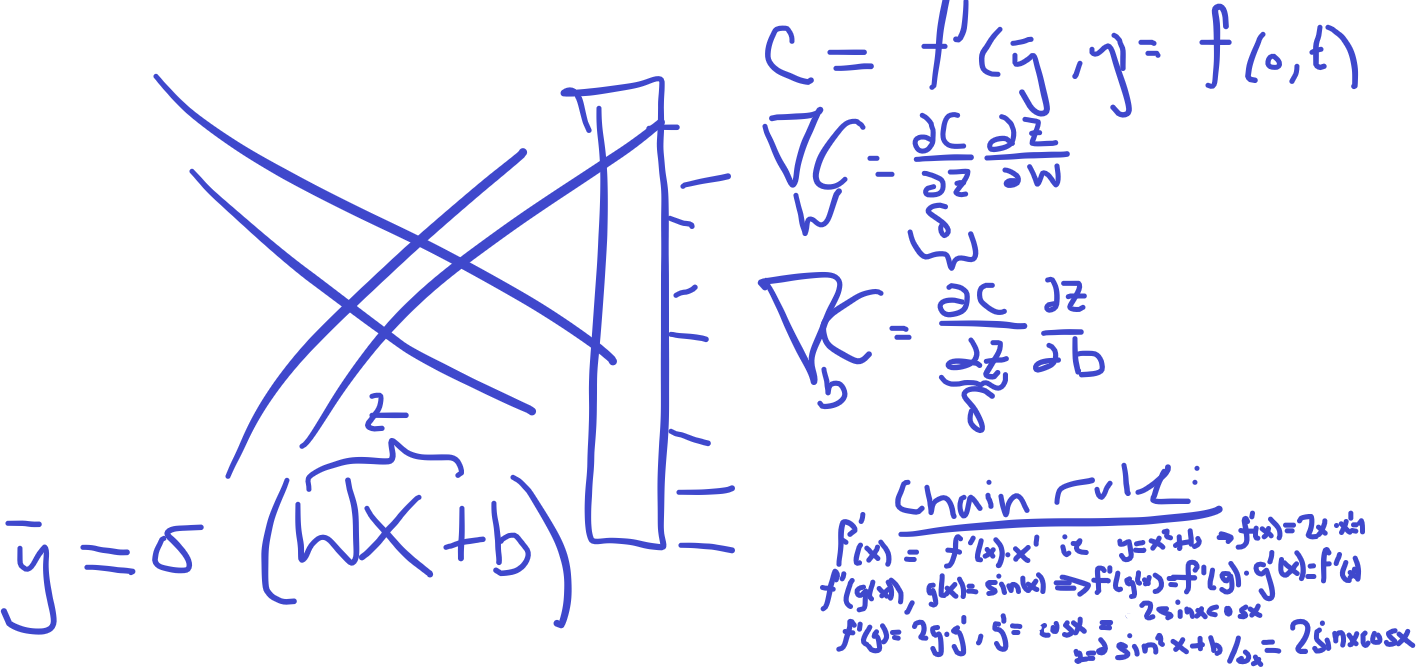 C = f(ȳ, y) = f(o, t)
∇_W C = ∂C/∂z ∂z/∂W
δ
∇_b C = ∂C/∂z ∂z/∂b
δ
z
ȳ = σ(WX + b)
chain rule:
f'(x) = f'(x)·x' ie y=x²+b → f'(x)=2x·x'=1
f'(g(x)), g(x)=sin(x) => f'(g(x))=f'(g)·g'(x)=f'(x)
f'(g)=2g·g', g'=cosx = 2sinxcosx
z=> sin²x+b/∂x = 2sinxcosx